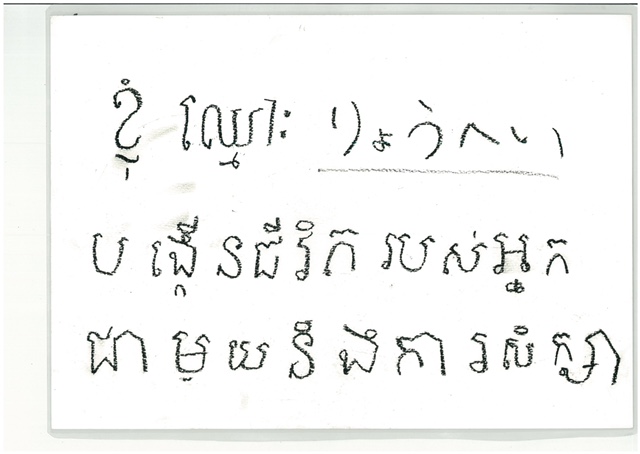 ខ្ញុំ ឈ្មោះ
បង្កើនជីវិតរបស់អ្នក
ជាមួយនឹងការសិក្សា